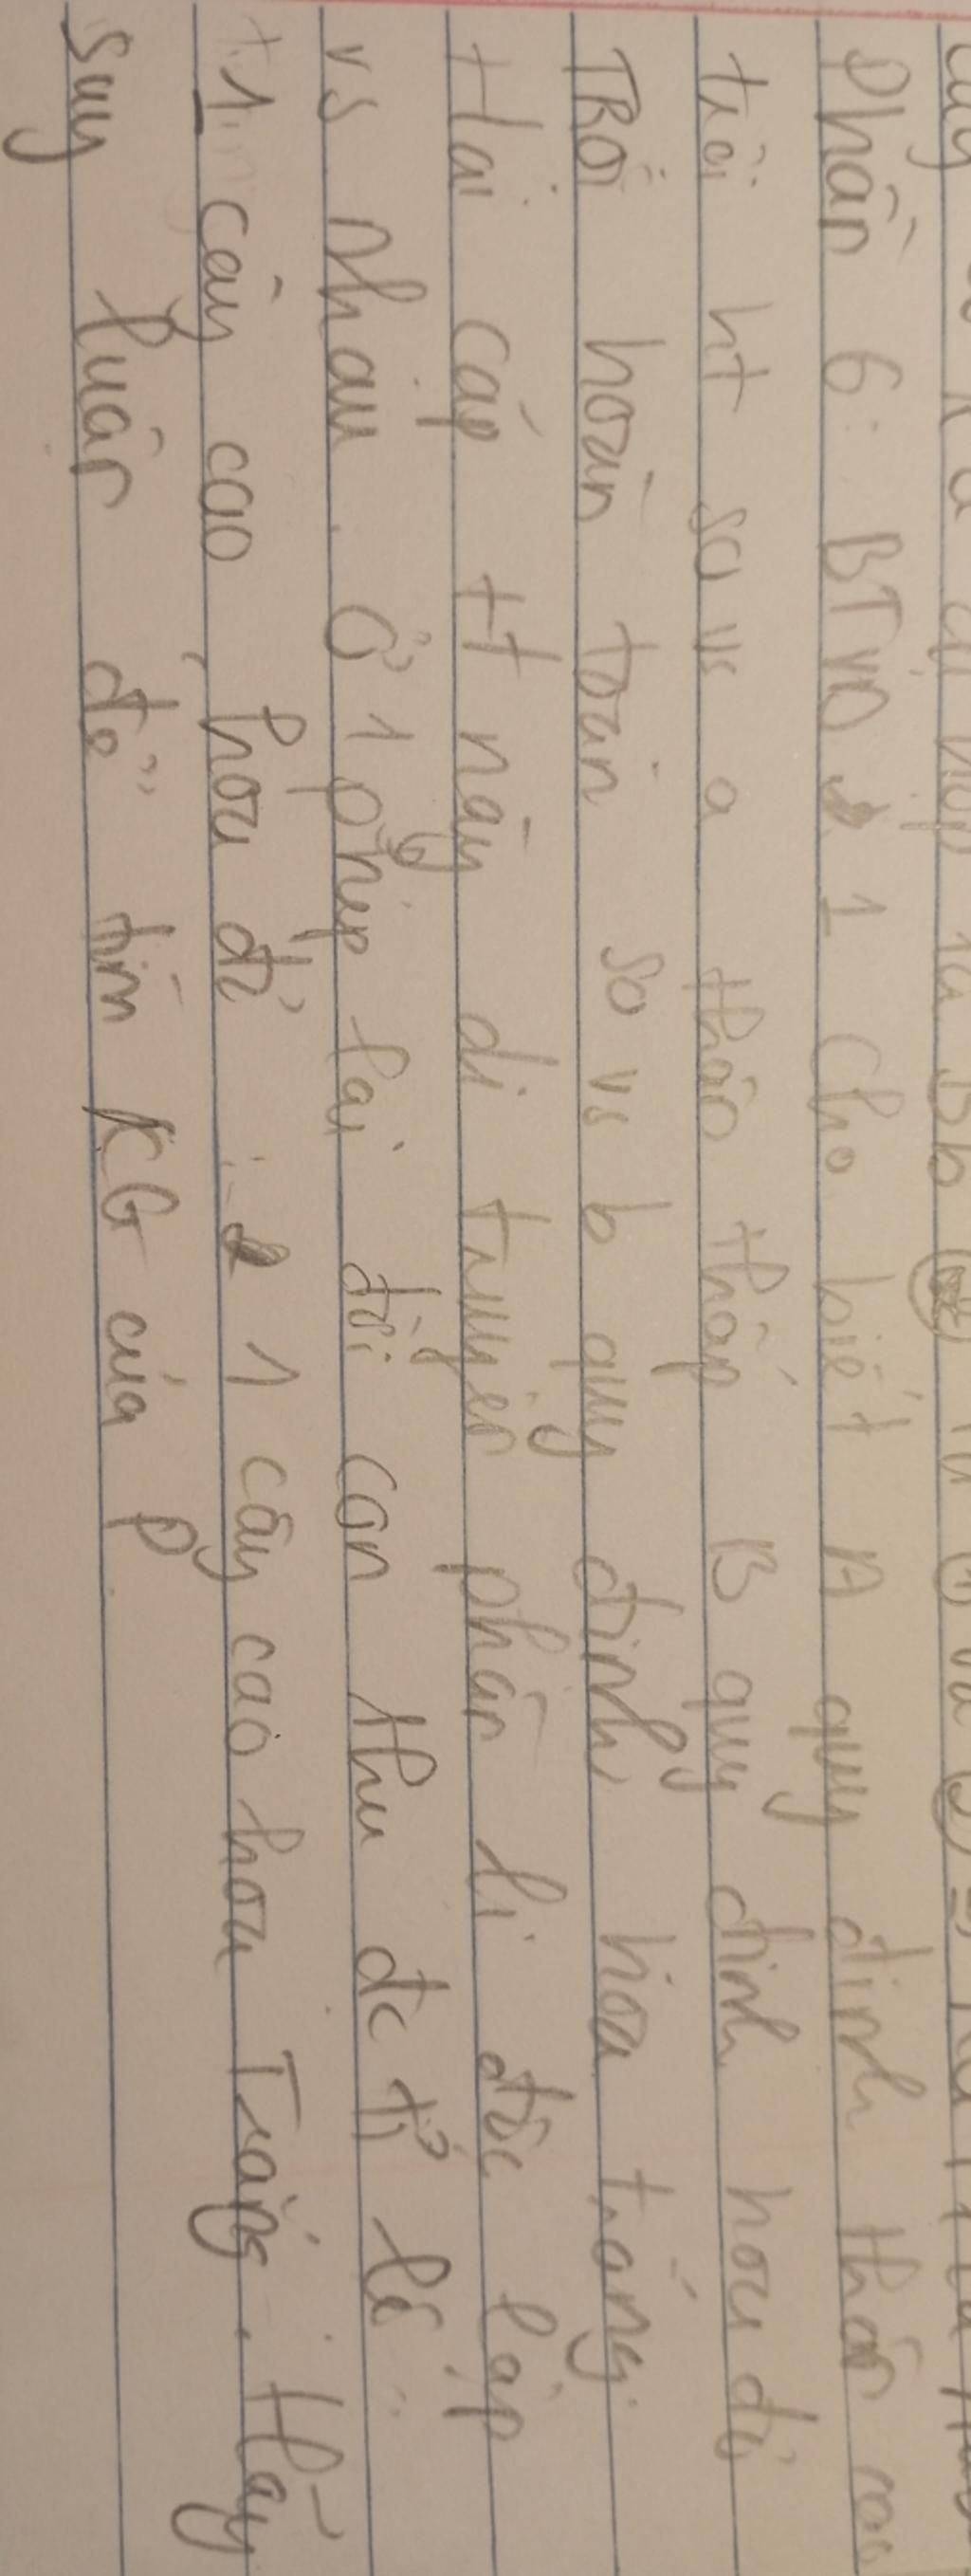 Phần 6: BTVD 1 Cho biết A quy định thân cao
trội ht so vs a thân thấp B quy định hoa đỏ
Trội hoàn toàn so vs b quy định hoa trắng.
Hai cặp tt này di truyền phân li độc lập
vs nhau. Ở 1 phép lai đời con thu đc tỉ lệ:
1 cây cao hoa đỏ : 1 cây cao hoa Trắng. Hãy
suy luận để tìm KG của P